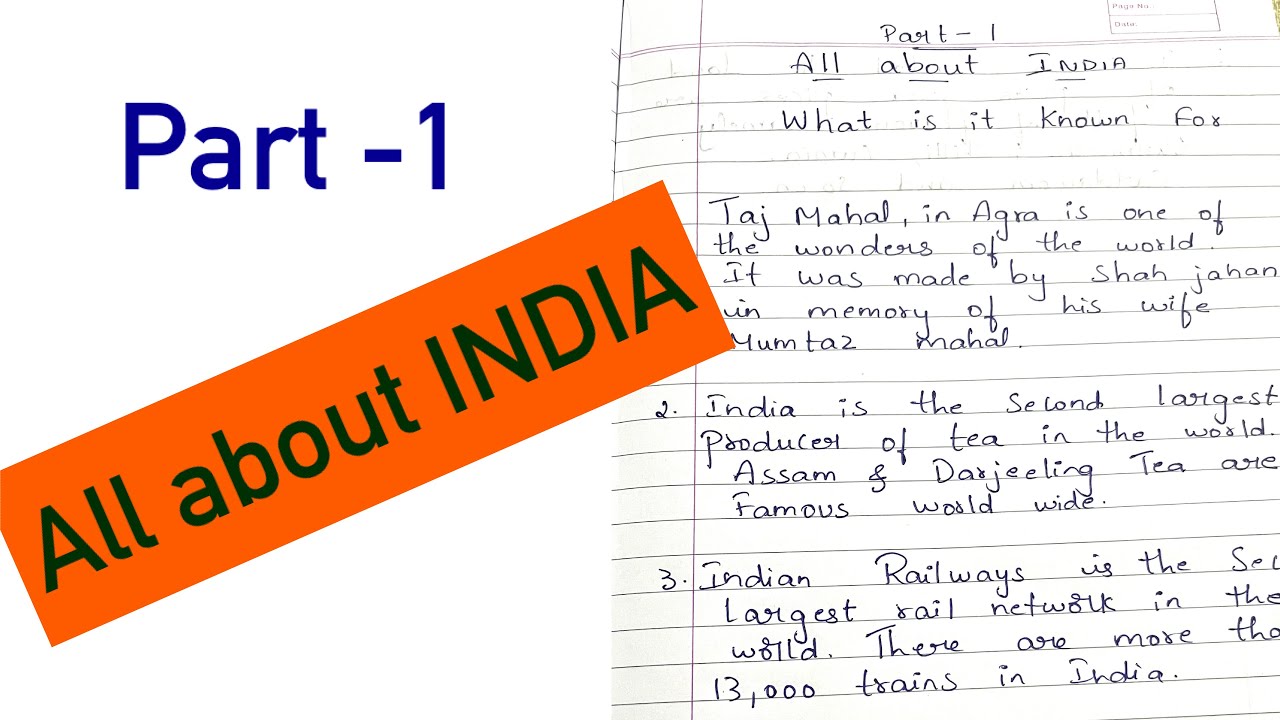 Part -1
All about INDIA
Page No.
Date:
Part - 1
All about INDIA
What is it Known For
Taj Mahal, in Agra is one of
the wonders of the world.
It was made by Shah jahan
in memory of his wife
Mumtaz mahal.
2. India is the Second largest
producer of tea in the world.
Assam & Darjeeling Tea are
Famous world wide.
3. Indian Railways is the Sec
largest rail network in the
world. There are more tha
13,000 trains in India.